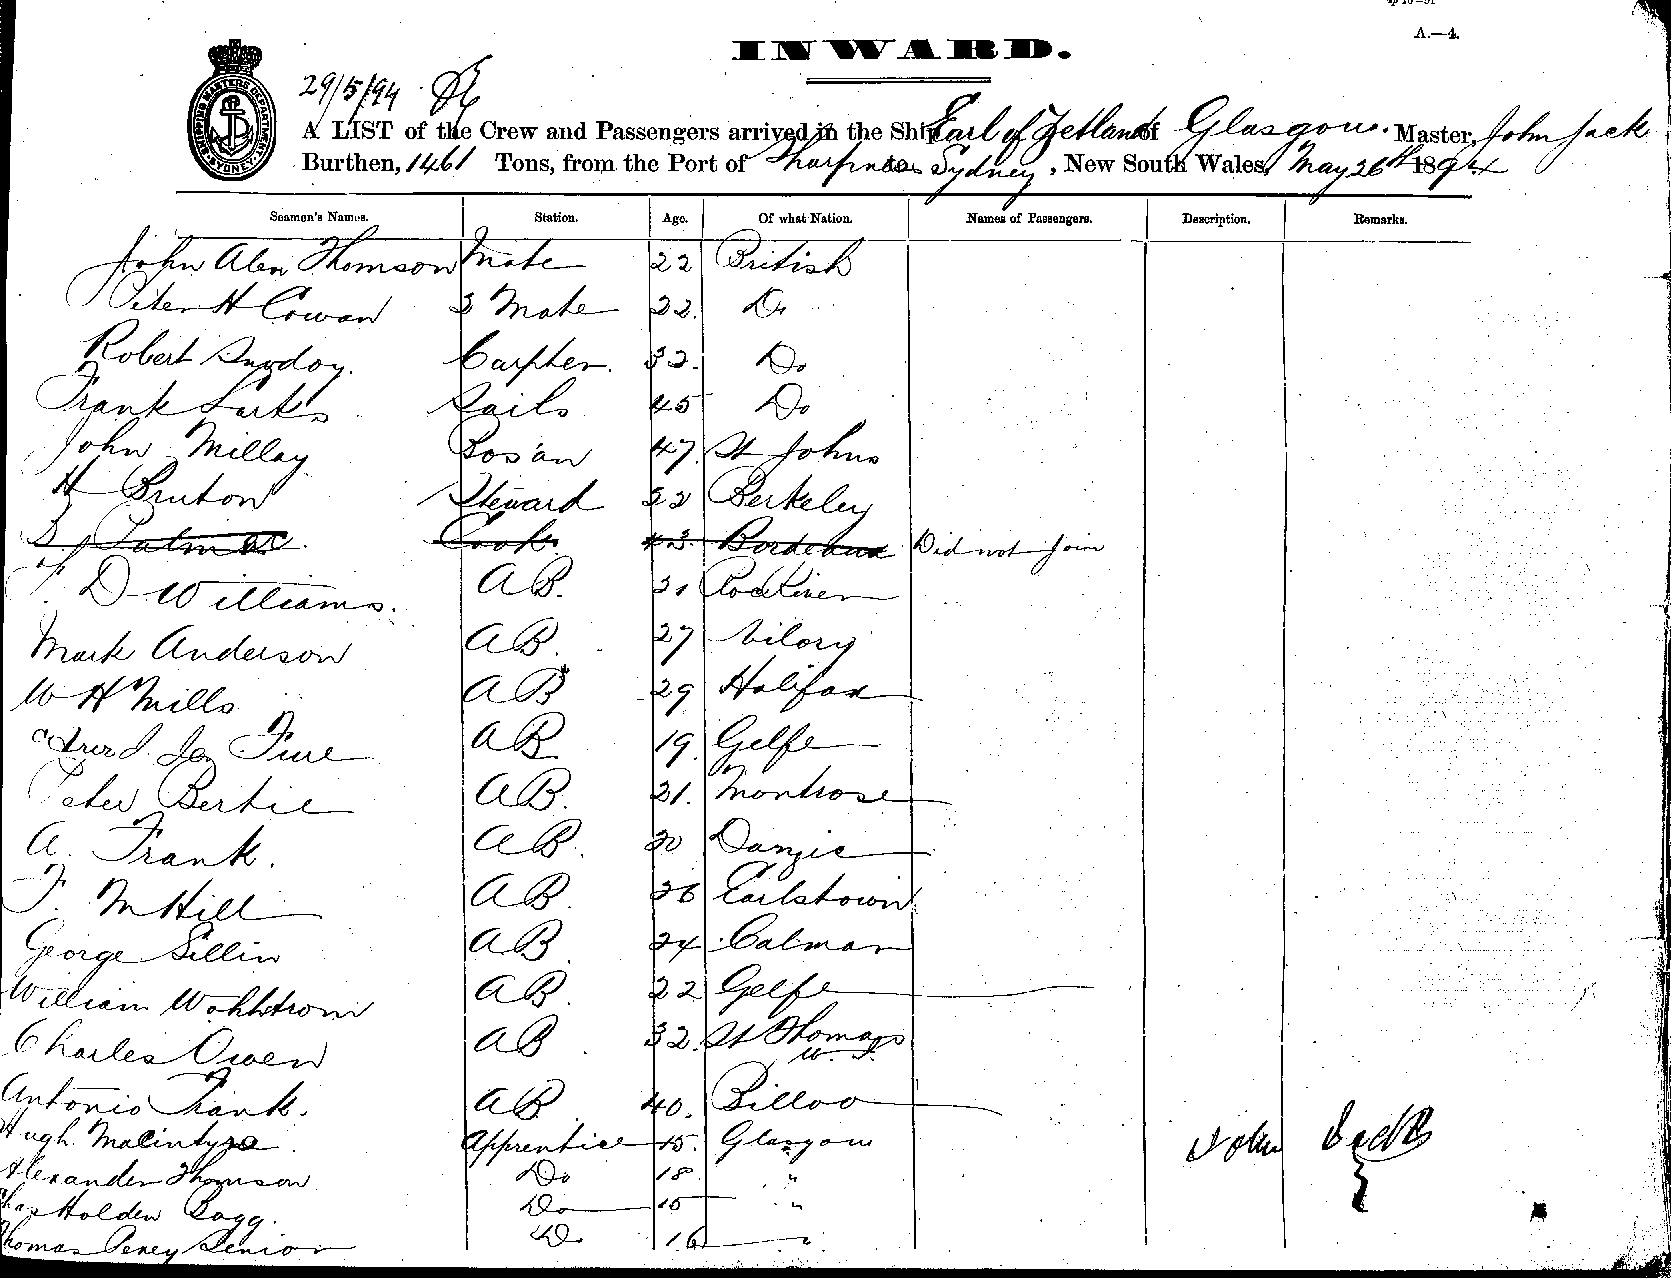 A.—4.
INWARD.
29/5/94
A LIST of the Crew and Passengers arrived in the Ship Earl of Zetland of Glasgow. Master, John Jack
Burthen, 1461 Tons, from the Port of Sharpness to Sydney, New South Wales, May 26th 1894
Seamen's Names. Station. Age. Of what Nation. Names of Passengers. Description. Remarks.
John Alen Thomson Mate 22 British
Peter H Cowan 2 Mate 22. Do
Robert Carpter. 32. Do
Frank Sails 45 Do
John Millay Bos'an 47. St Johns
H Bruton Steward 22 Berkeley
Cook 43. Bordeaux Did not Join
D Williams. AB. 21
Mark Anderson AB. 27
W H Mills AB 29 Halifax
AB 19. Gelfe
Peter Bertie AB. 21. Montrose
A. Frank. AB. 20 Danzic
F. McHill AB. 26 Earlstown
George Sillin AB 24 Calmar
William Wohlstrom AB. 22 Gelfe
Charles Owen AB 32. St Thomas
W. I.
Antonio Frank. AB 40. Billoo
Hugh Macintyre Apprentice 15. Glasgow
Alexander Thomson Do 18 "
Chas Holden Sagg. Do 15 "
Thomas Percy Senior Do 16 "
John Jack